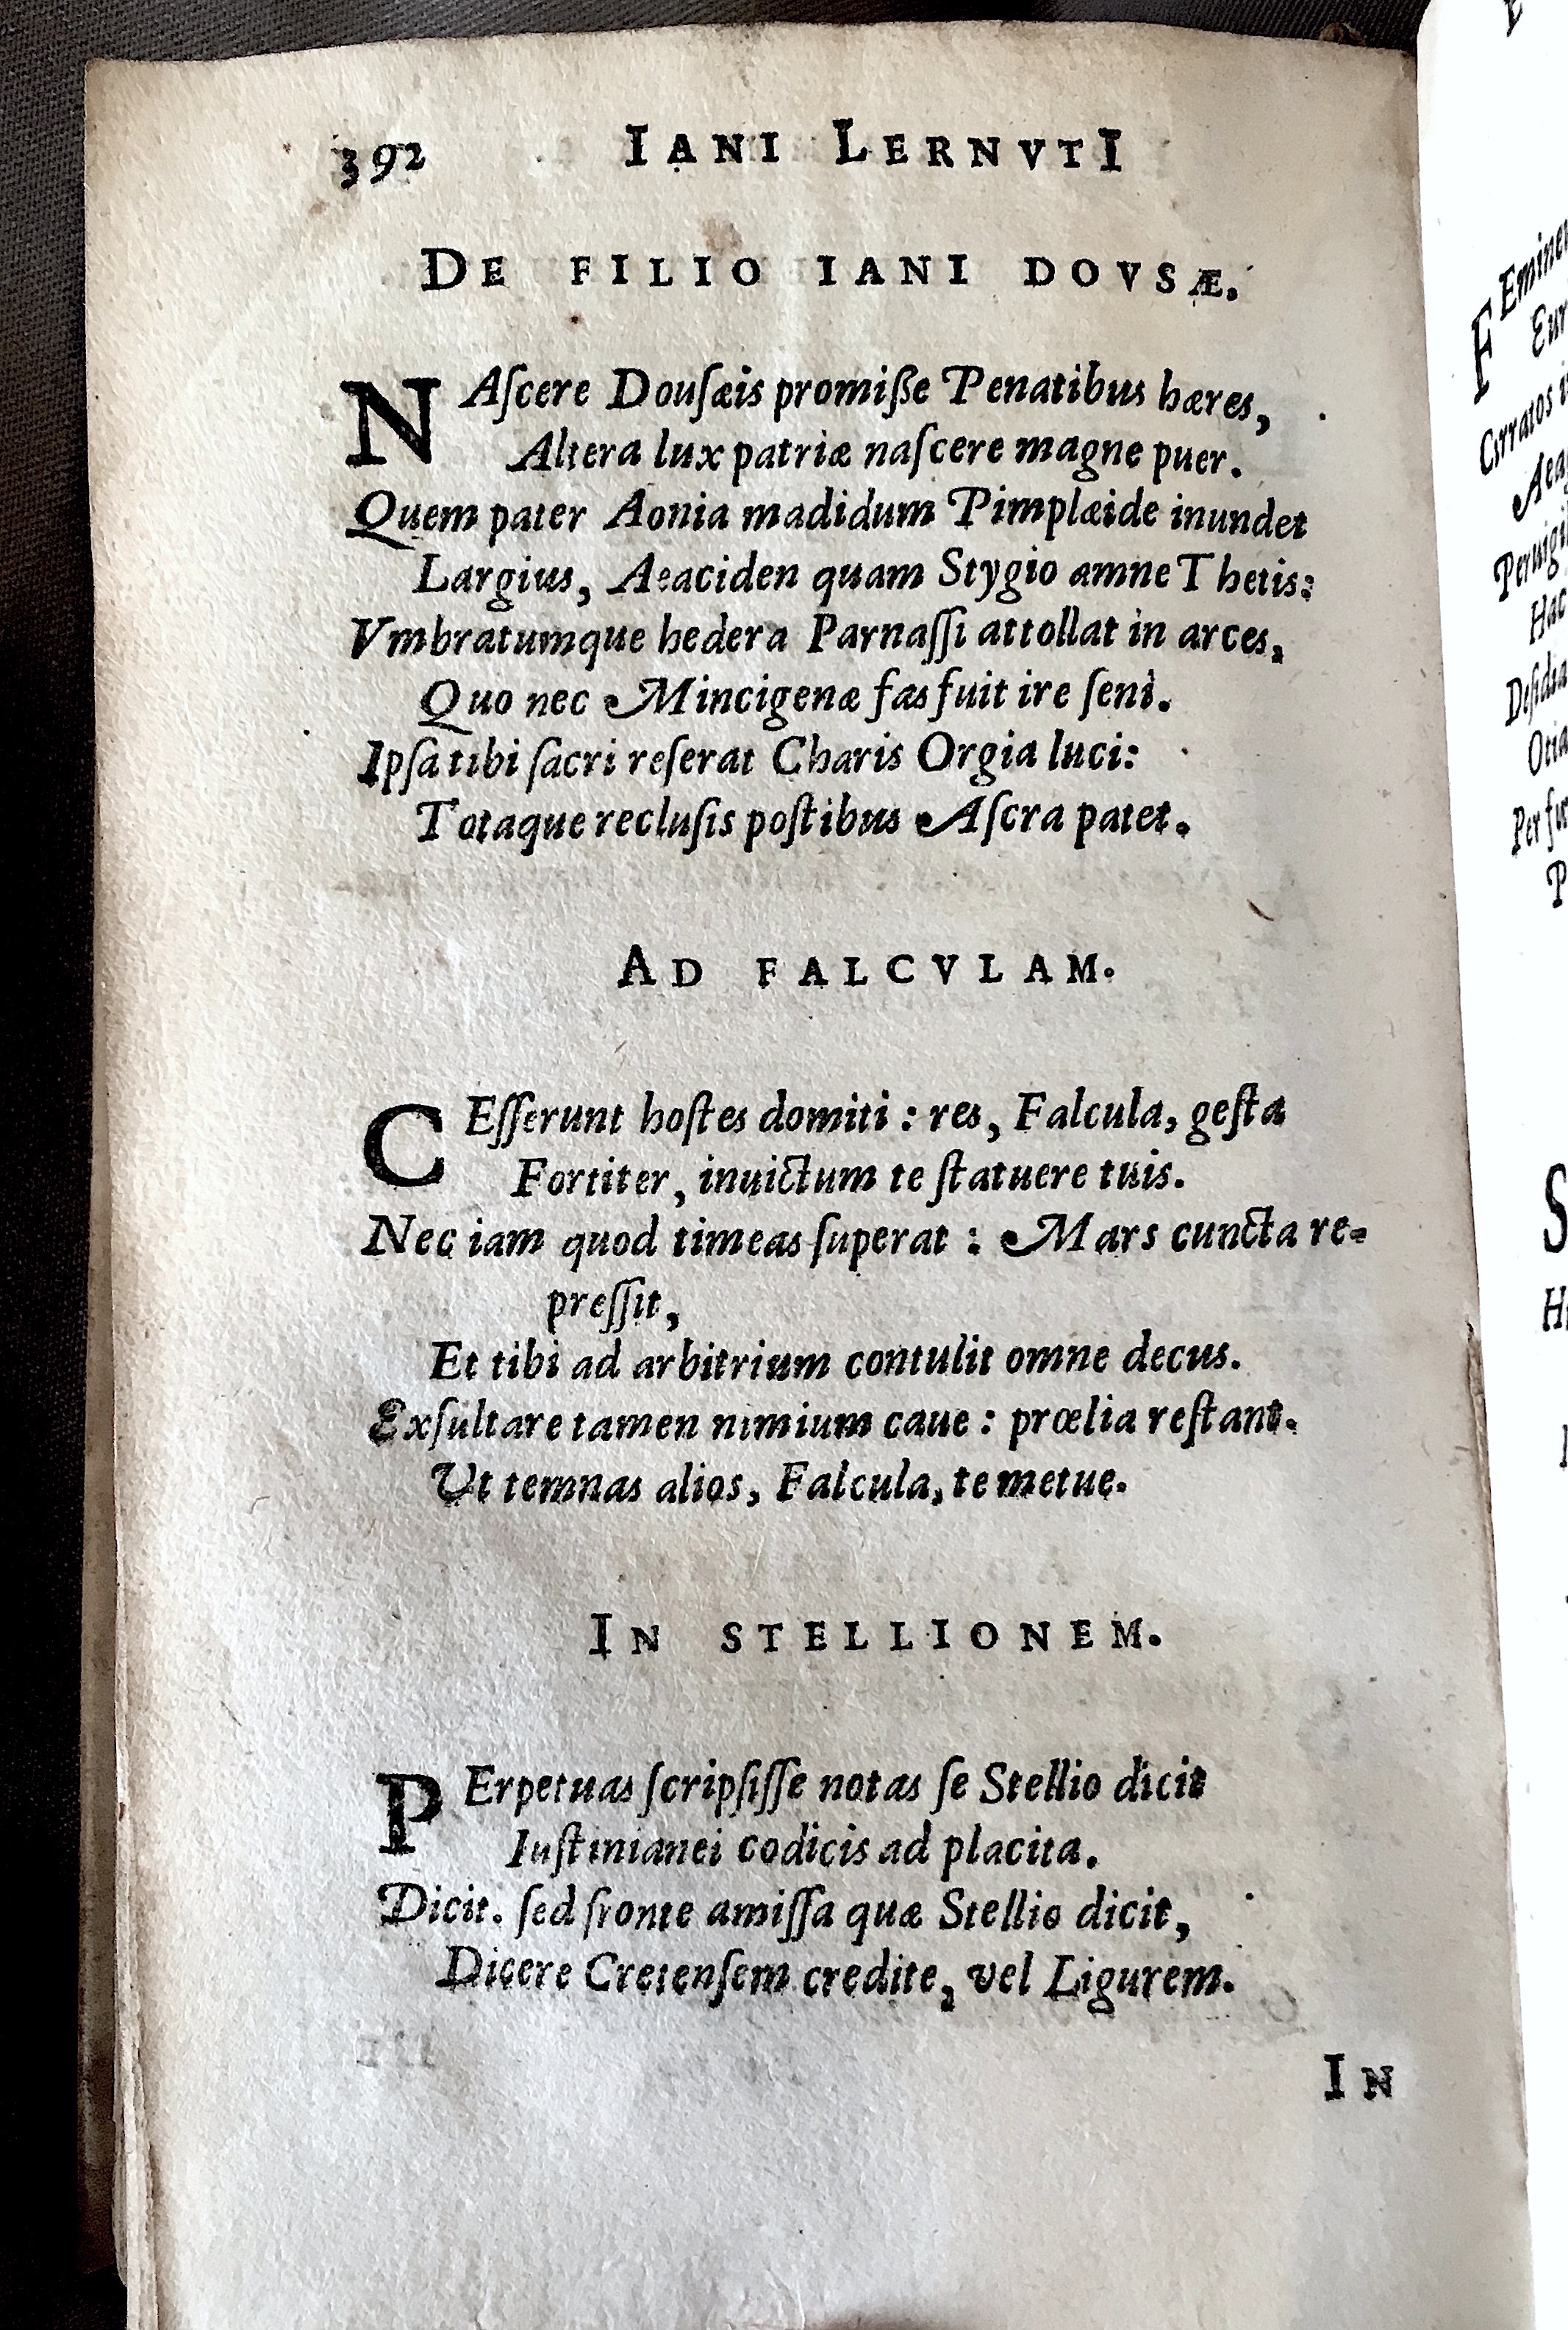 392 IANI LERNVTI
DE FILIO IANI DOVSÆ.
NAſcere Douſæis promiße Penatibus hæres,
Altera lux patriæ naſcere magne puer.
Quem pater Aonia madidum Pimplæide inundet
Largius, Aeaciden quam Stygio amne Thetis:
Vmbratumque hedera Parnaſſi attollat in arces,
Quo nec Mincigenæ fas fuit ire ſeni.
Ipſa tibi ſacri reſerat Charis Orgia luci:
Totaque recluſis poſtibus Aſcra patet.
AD FALCVLAM.
CEſſerunt hoſtes domiti : res, Falcula, geſta
Fortiter, inuictum te ſtatuere tuis.
Nec iam quod timeas ſuperat : Mars cuncta re-
preſſit,
Et tibi ad arbitrium contulit omne decus.
Exſultare tamen nimium caue : prœlia reſtant.
Ut temnas alios, Falcula, te metue.
IN STELLIONEM.
PErpetuas ſcripſiſſe notas ſe Stellio dicit
Iuſtinianei codicis ad placita.
Dicit. ſed fronte amiſſa quæ Stellio dicit,
Dicere Cretenſem credite, vel Ligurem.
IN
Eur
Cirratos
Hac
Otia